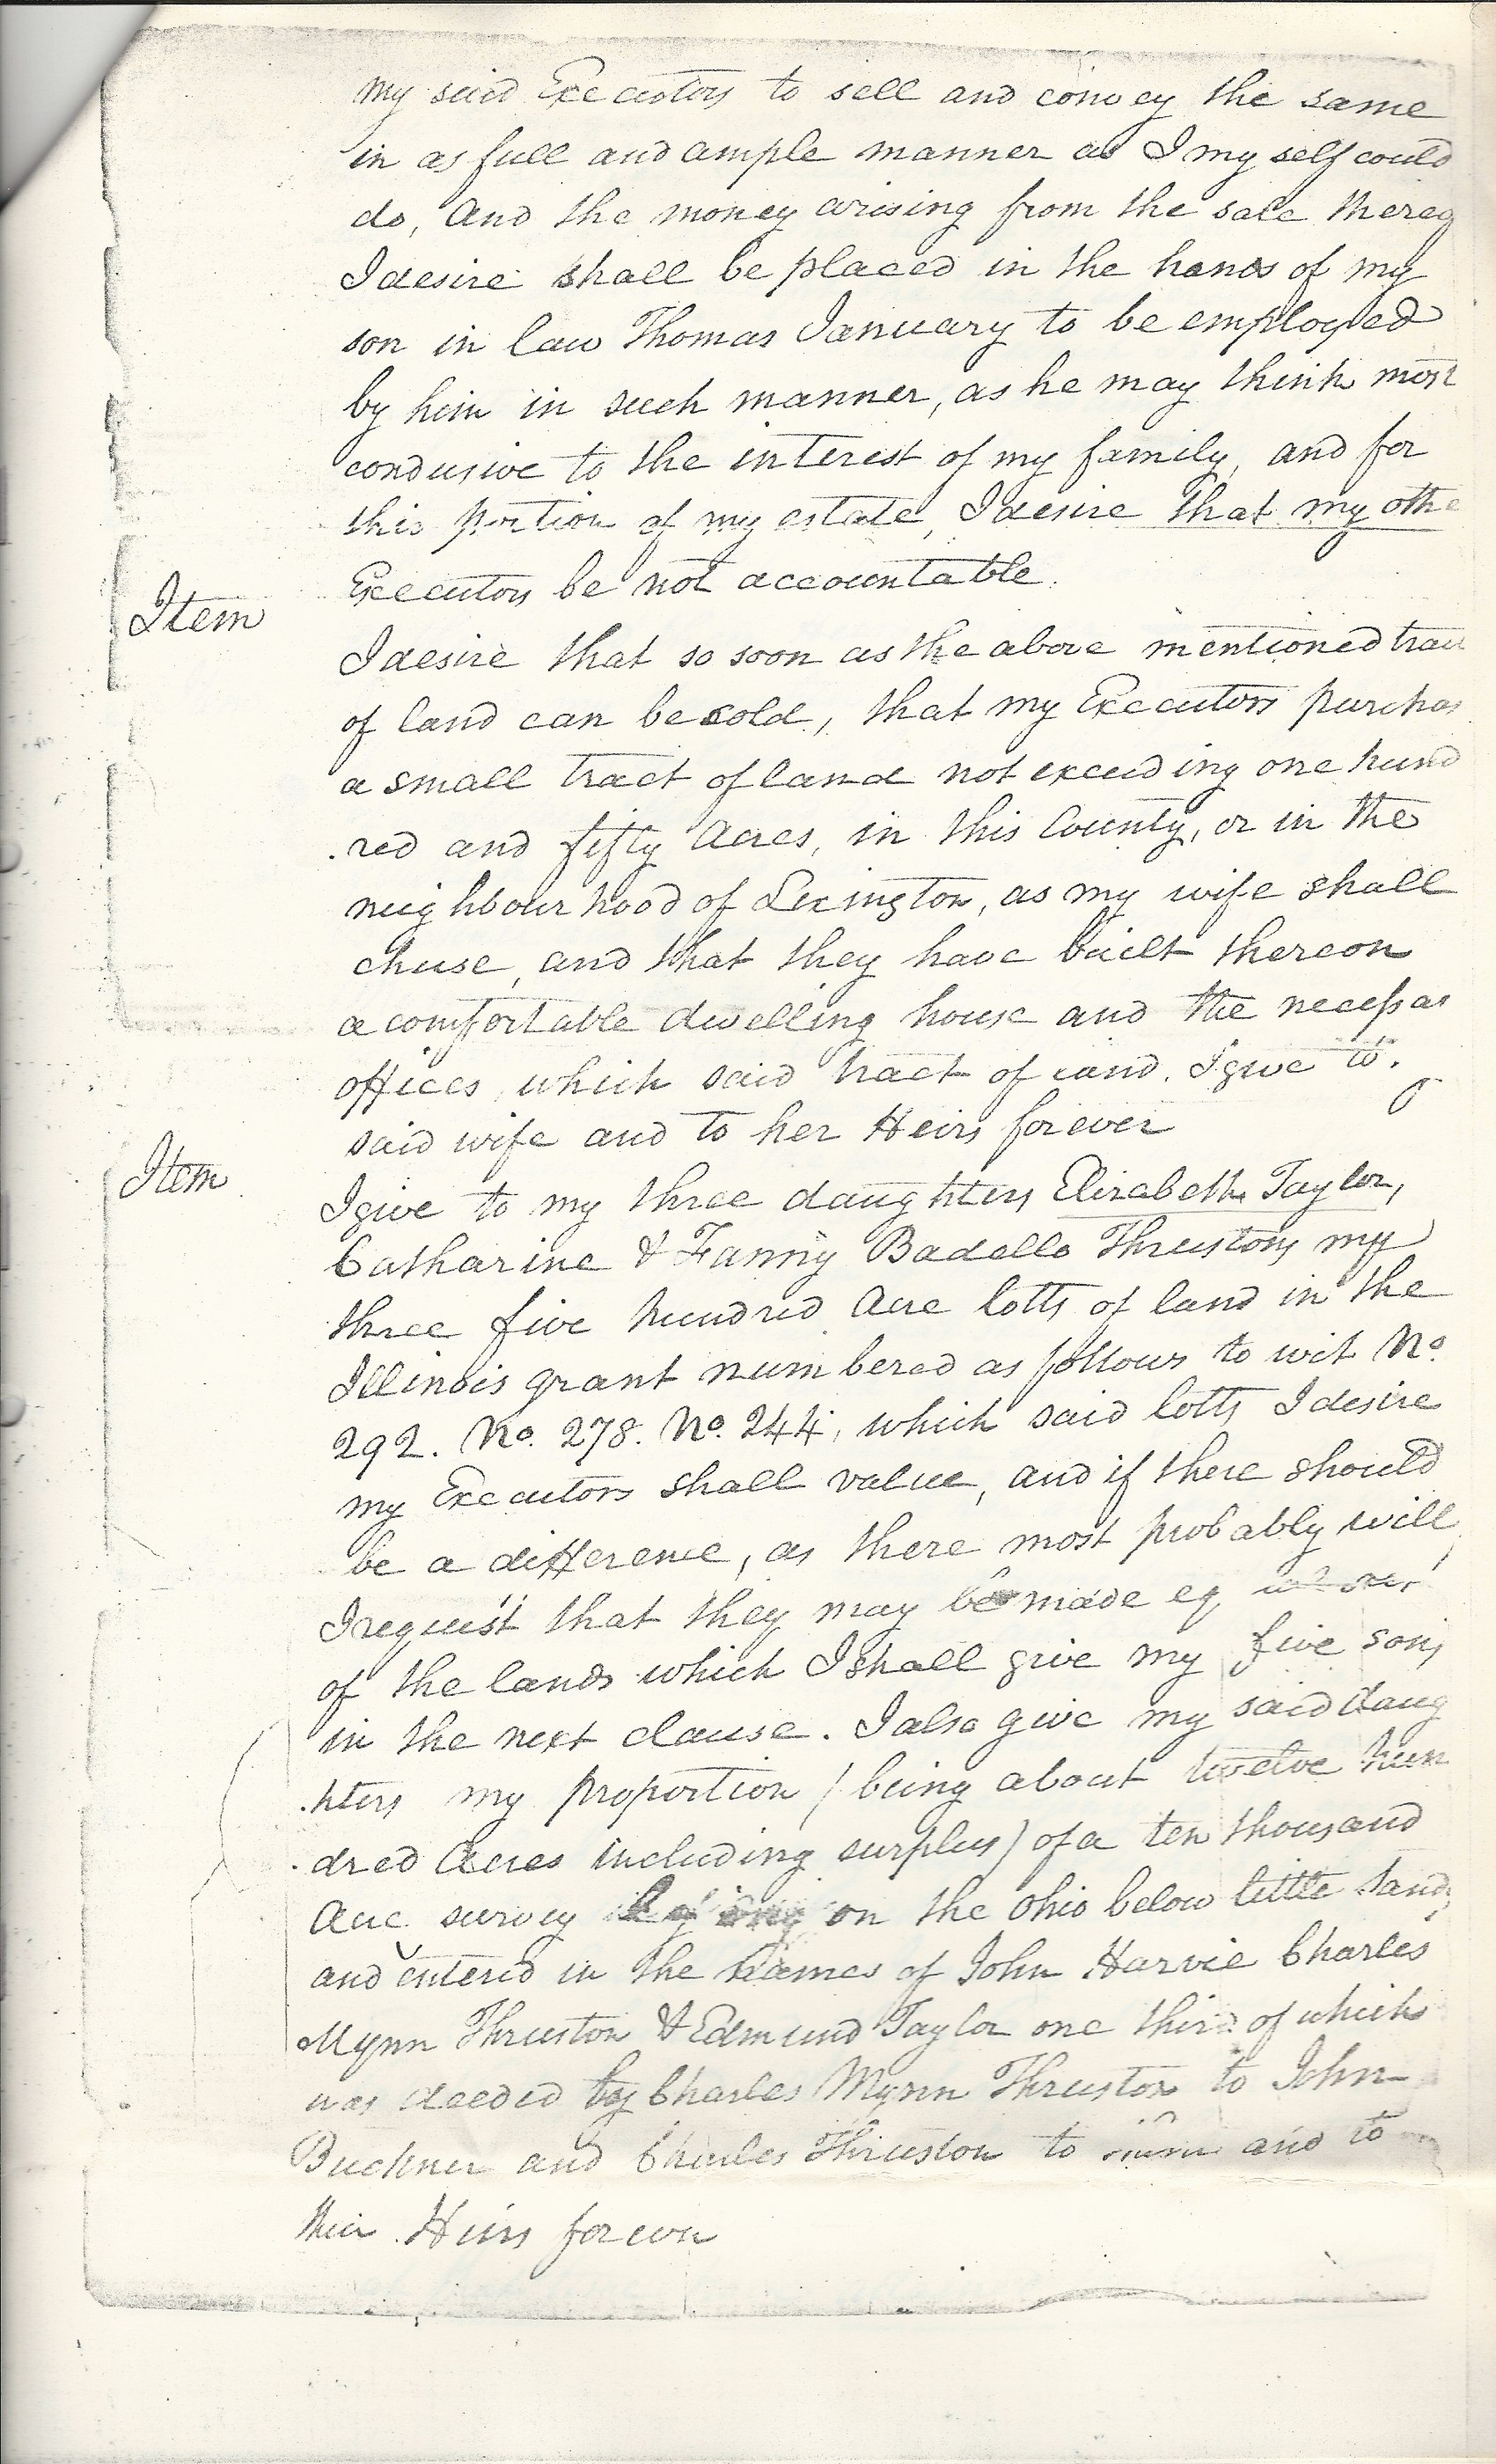 my said Executors to sell and convey the same
in as full and ample manner as I my self could
do, and the money arising from the sale thereo
I desire shall be placed in the hands of my
son in law Thomas January to be employed
by him in such manner, as he may think most
condusive to the interest of my family, and for
this portion of my estate, I desire that my othe
Executors be not accountable.
Item
I desire that so soon as the above mentioned trac
of land can be sold, that my Executors purchas
a small tract of land not exceeding one hund
.red and fifty Acres, in this County, or in the
neighbourhood of Lexington, as my wife shall
chuse, and that they have built thereon
a comfortable dwelling house and the necessar
offices, which said tract of land. I give to
said wife and to her Heirs forever
Item
I give to my three daughters Elizabeth Taylor,
Catharine & Fanny Badello Thrustons my
three five hundred Acre lotts of land in the
Illinois grant numbered as follows to wit No.
292. No. 278. No. 244, which said lotts I desire
my Executors shall value, and if there should
be a difference, as there most probably will,
I request that they may be made eq
of the lands which I shall give my five sons
in the next clause. I also give my said daug
.hters my proportion (being about twelve hun
.dred Acres including surplus) of a ten thousand
Acre survey on the Ohio below little Sandy
and entered in the names of John Harvie Charles
Mynn Thruston & Edmund Taylor one third of which
was deeded by Charles Mynn Thruston to John
Buckner and Charles Thruston to and to
their Heirs forever